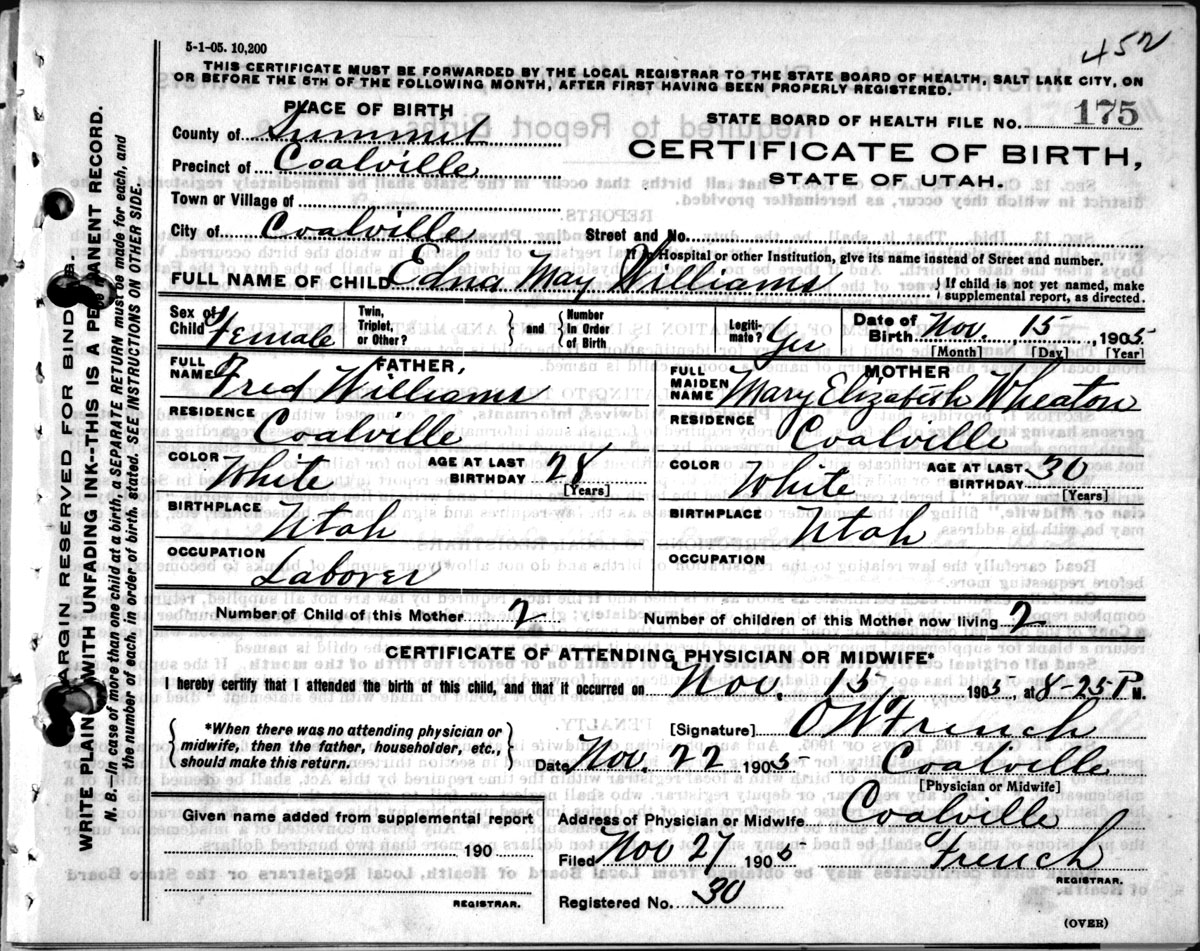 5-1-05. 10,200
452
THIS CERTIFICATE MUST BE FORWARDED BY THE LOCAL REGISTRAR TO THE STATE BOARD OF HEALTH, SALT LAKE CITY, ON
OR BEFORE THE 5TH OF THE FOLLOWING MONTH, AFTER FIRST HAVING BEEN PROPERLY REGISTERED.
PLACE OF BIRTH
STATE BOARD OF HEALTH FILE No. 175
County of Summit
CERTIFICATE OF BIRTH,
Precinct of Coalville
STATE OF UTAH.
Town or Village of
City of Coalville Street and No.
If in Hospital or other Institution, give its name instead of Street and number.
FULL NAME OF CHILD Edna May Williams } If child is not yet named, make
supplemental report, as directed.
Sex of Child Female
Twin, Triplet, or Other? } and { Number In Order of Birth
Legiti- mate? Yes
Date of Birth Nov. 15, 1905
[Month] [Day] [Year]
FATHER,
FULL NAME Fred Williams
RESIDENCE
Coalville
COLOR White AGE AT LAST BIRTHDAY 28
[Years]
BIRTHPLACE
Utah
OCCUPATION
Laborer
MOTHER
FULL MAIDEN NAME Mary Elizabeth Wheaton
RESIDENCE
Coalville
COLOR White AGE AT LAST BIRTHDAY 30
[Years]
BIRTHPLACE
Utah
OCCUPATION
Number of Child of this Mother 2 Number of children of this Mother now living 2
CERTIFICATE OF ATTENDING PHYSICIAN OR MIDWIFE:
I hereby certify that I attended the birth of this child, and that it occurred on Nov. 15, 1905, at 8-25 P M.
{ *When there was no attending physician or
midwife, then the father, householder, etc.,
should make this return. }
[Signature] French
Date Nov. 22 1905 Coalville
[Physician or Midwife]
Given name added from supplemental report
190
REGISTRAR.
Address of Physician or Midwife Coalville
Filed Nov 27 1905 French
REGISTRAR.
Registered No. 30
(OVER)
MARGIN RESERVED FOR BINDING.
WRITE PLAINLY WITH UNFADING INK--THIS IS A PERMANENT RECORD.
N. B.—In case of more than one child at a birth, a SEPARATE RETURN must be made for each, and
the number of each, in order of birth, stated. SEE INSTRUCTIONS ON OTHER SIDE.